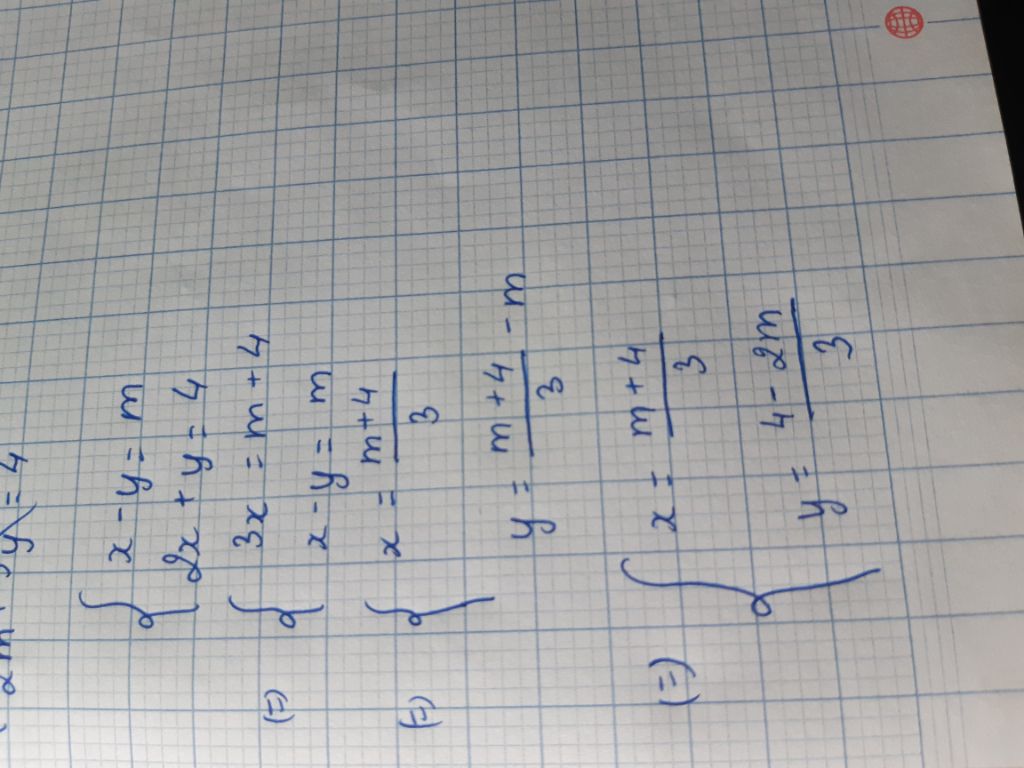 y = 4
x - y = m
2x + y = 4
(=) 3x = m + 4
x - y = m
(=) x = m+4 / 3
y = m+4 / 3 - m
(=) x = m+4 / 3
y = 4 - 2m / 3